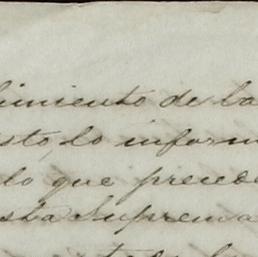 limiento de la
sto, lo inform
lo que preced
sta Suprema